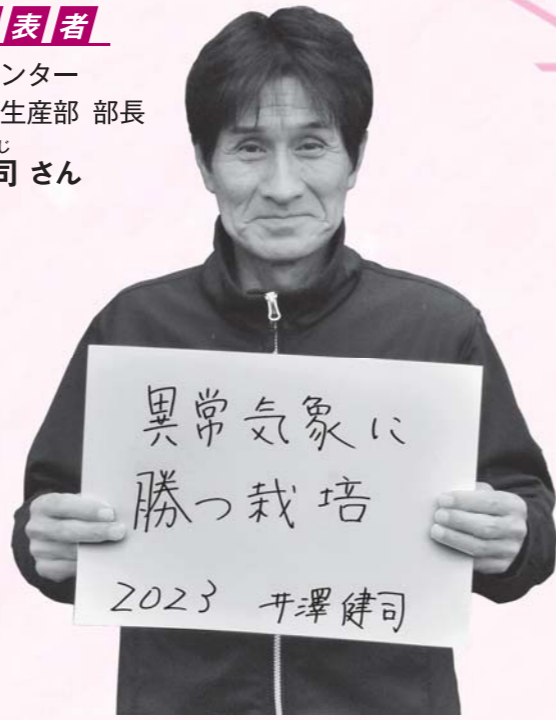 表者
ンター
生産部 部長
じ
司 さん
異常気象に
勝つ栽培
2023 井澤健司